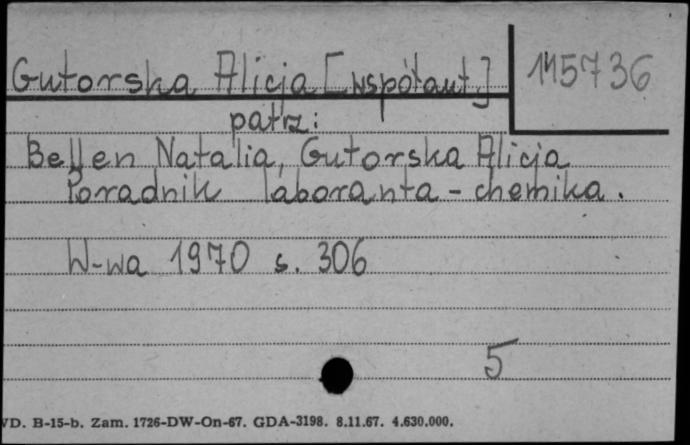 Gutorska Alicja [współaut.] 115736
patrz:
Bellen Natalia, Gutorska Alicja
Poradnik laboranta - chemika.
W-wa 1970 s. 306
5
VD. B-15-b. Zam. 1726-DW-On-67. GDA-3198. 8.11.67. 4.630.000.